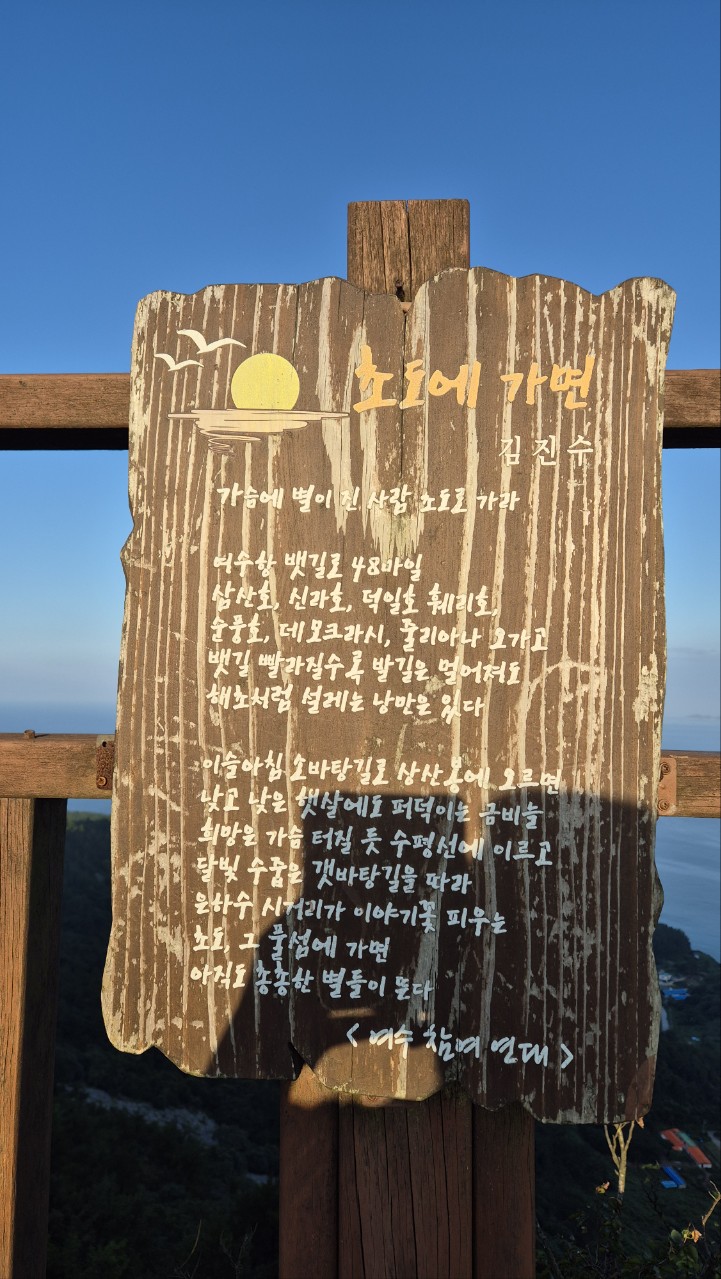 초도에 가면
김진수
가슴에 별이 진 사람 초도로 가라
여수항 뱃길로 48마일
삼산호, 신라호, 덕일호 훼리호,
순풍호, 데모크라시, 줄리아나 오가고
뱃길 빨라질수록 발길은 멀어져도
해초처럼 설레는 낭만은 있다
이슬아침 소바탕길로 상산봉에 오르면
낮고 낮은 햇살에도 퍼덕이는 금비늘
희망은 가슴 터질 듯 수평선에 이르고
달빛 수줍은 갯바탕길을 따라
은하수 시거리가 이야기꽃 피우는
초도, 그 풀섬에 가면
아직도 총총한 별들이 뜬다
<여수 참여 연대>